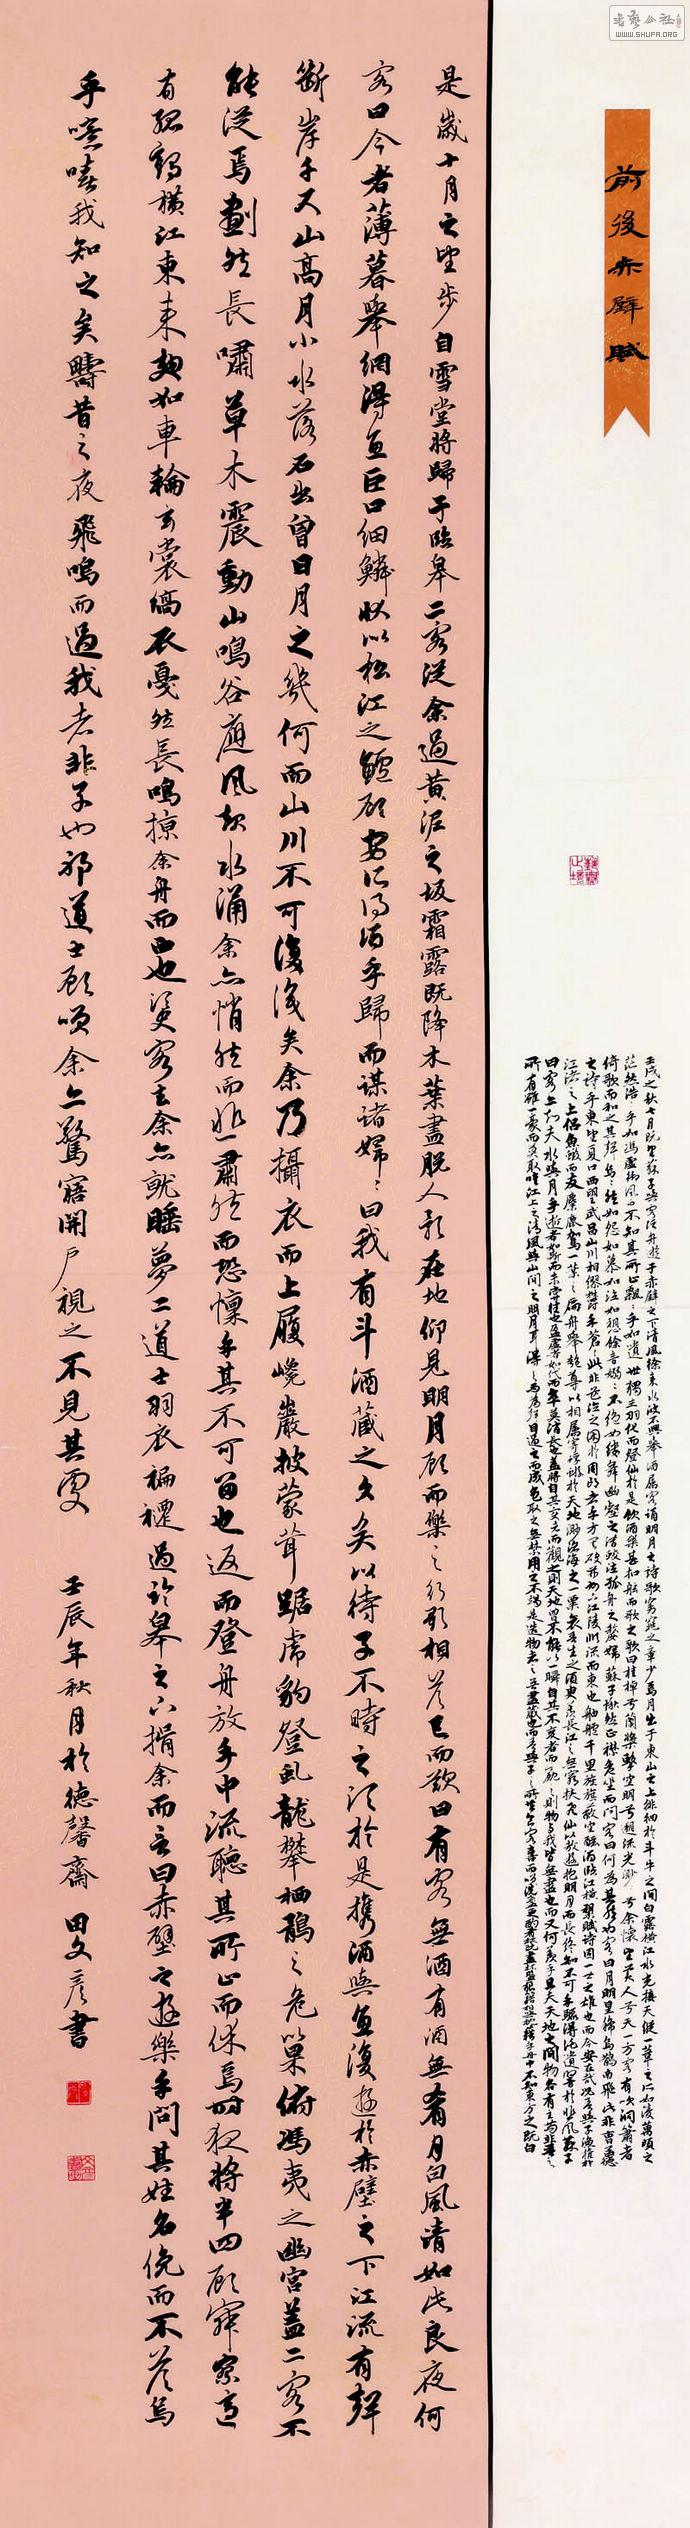 前後赤壁賦
壬戌之秋七月既望蘇子與客泛舟遊于赤壁之下清風徐來水波不興舉酒屬客誦明月之詩歌窈窕之章少焉月出于東山之上徘徊於斗牛之間白露橫江水光接天縱一葦之所如凌萬頃之
茫然浩〻乎如馮虛御風而不知其所止飄〻乎如遺世獨立羽化而登仙於是飲酒樂甚扣舷而歌之歌曰桂棹兮蘭槳擊空明兮遡流光渺〻兮余懷望美人兮天一方客有吹洞簫者
倚歌而和之其聲嗚〻然如怨如慕如泣如訴餘音嫋〻不絕如縷舞幽壑之潛蛟泣孤舟之嫠婦蘇子愀然正襟危坐而問客曰何為其然也客曰月明星稀烏鵲南飛此非曹孟德
之詩乎東望夏口西望武昌山川相繆鬱乎蒼〻此非孟德之困於周郎者乎方其破荊州下江陵順流而東也舳艫千里旌旗蔽空釃酒臨江橫槊賦詩固一世之雄也而今安在哉況吾與子漁樵於
江渚之上侶魚蝦而友麋鹿駕一葉之扁舟舉匏尊以相屬寄蜉蝣於天地渺滄海之一粟哀吾生之須臾羨長江之無窮挾飛仙以遨遊抱明月而長終知不可乎驟得託遺響於悲風蘇子
曰客亦知夫水與月乎逝者如斯而未嘗往也盈虛者如代而卒莫消長也蓋將自其變者而觀之則天地曾不能以一瞬自其不變者而觀之則物與我皆無盡也而又何羨乎且夫天地之間物各有主苟非吾之
所有雖一毫而莫取唯江上之清風與山間之明月耳得之而為聲目遇之而成色取之無禁用之不竭是造物者之無盡藏也而吾與子之所共食客喜而笑洗盞更酌肴核既盡杯盤狼藉相與枕藉乎舟中不知東方之既白
是歲十月之望步自雪堂將歸于臨皋二客從余過黃泥之坂霜露既降木葉盡脫人影在地仰見明月顧而樂之行歌相答已而歎曰有客無酒有酒無肴月白風清如此良夜何
客曰今者薄暮舉網得魚巨口細鱗狀似松江之鱸顧安所得酒乎歸而謀諸婦〻曰我有斗酒藏之久矣以待子不時之須於是攜酒與魚復遊於赤壁之下江流有聲
斷岸千尺山高月小水落石出曾日月之幾何而山川不可復識矣余乃攝衣而上履巉巖披蒙茸踞虎豹登虬龍攀栖鶻之危巢俯馮夷之幽宮蓋二客不
能從焉劃然長嘯草木震動山鳴谷應風起水涌余亦悄然而悲肅然而恐懍乎其不可留也返而登舟放乎中流聽其所止而休焉時夜將半四顧寂寥適
有孤鶴橫江東來翅如車輪玄裳縞衣戛然長鳴掠余舟而西也須臾客去余亦就睡夢二道士羽衣褊褼過臨皋之下揖余而言曰赤壁之遊樂乎問其姓名俛而不答嗚
乎噫嘻我知之矣疇昔之夜飛鳴而過我者非子也邪道士顧笑余亦驚寤開戶視之不見其處
壬辰年秋月於德馨齋 田文彥書
WWW.SHUFA.ORG